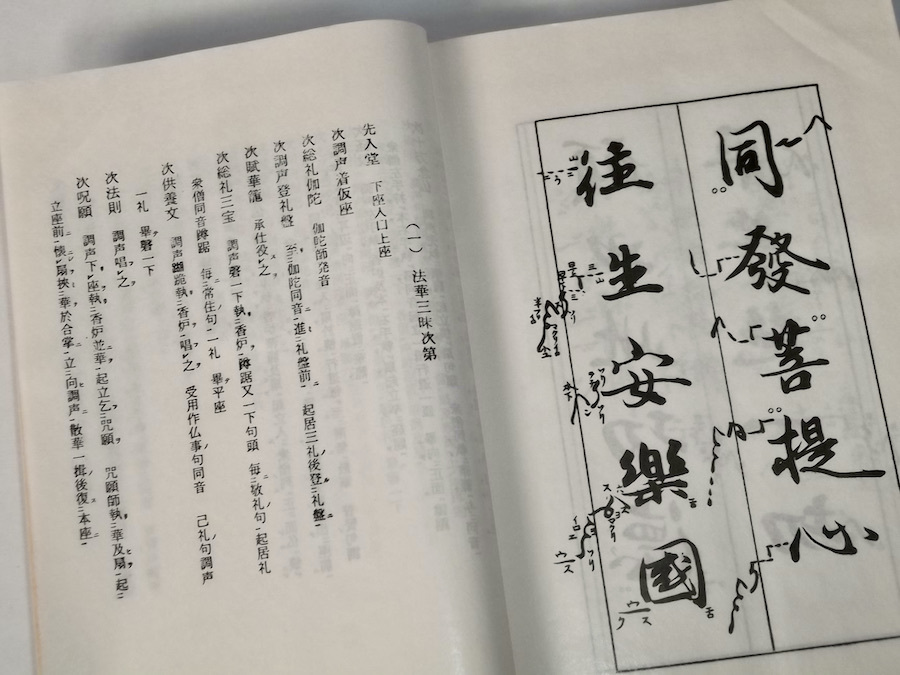 同發菩提心
往生安樂國
(一) 法華三昧次第
先入堂 下座入口上座
次調声着仮座
次総礼伽陀 伽陀師発音
次調声登礼盤 至伽陀同音進礼盤前 起居三礼後登礼盤
次賦華籠 承仕役之
次総礼三宝 調声磬一下執香炉蹲踞又一下句頭 毎敬礼句起居礼
衆僧同音蹲踞 毎常住句一礼 畢平座
次供養文 調声 跪執香炉唱之 受用作仏事句同音 己礼句調声
一礼 畢磬一下
次法則 調声唱之
次呪願 調声下座執香炉並華起立乞咒願 咒願師執華及扇起
立座前懐扇挾華於合掌立向調声散華一揖後復本座